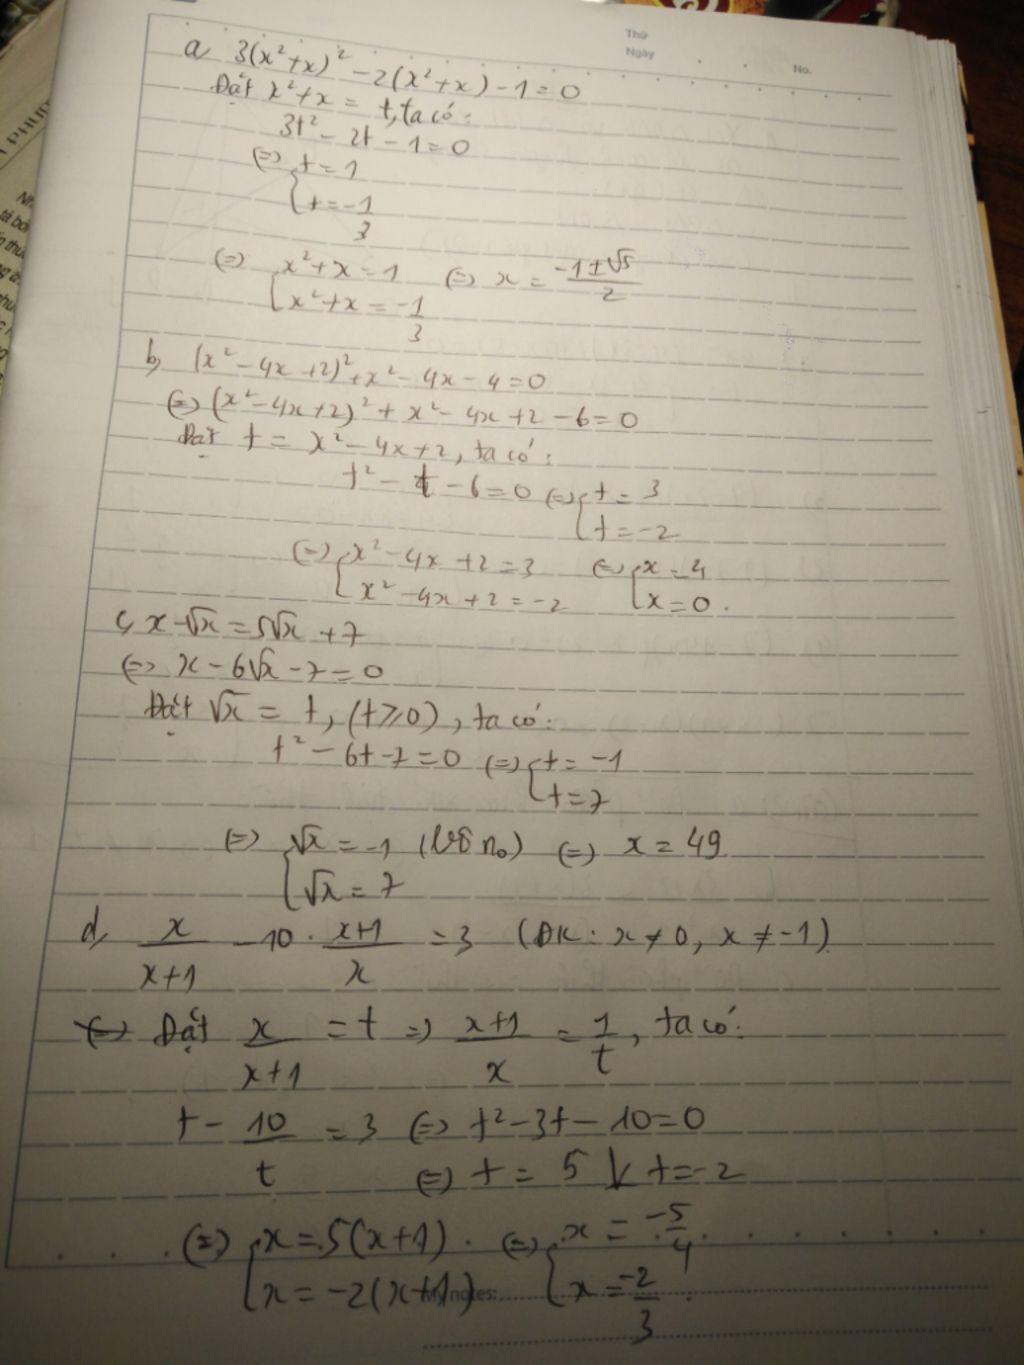 Thứ
Ngày
No.
a, 3(x²+x)² - 2(x²+x) - 1 = 0
Đặt x²+x = t, ta có:
3t² - 2t - 1 = 0
(=) [ t = 1
t = -1/3
(=) [ x²+x = 1 (=) x = (-1±√5)/2
x²+x = -1/3
b, (x² - 4x + 2)² + x² - 4x - 4 = 0
(=) (x² - 4x + 2)² + x² - 4x + 2 - 6 = 0
Đặt t = x² - 4x + 2, ta có:
t² - t - 6 = 0 (=) [ t = 3
t = -2
(=) [ x² - 4x + 2 = 3 (=) [ x = 4
x² - 4x + 2 = -2 x = 0.
c, x - √x = 5√x + 7
(=) x - 6√x - 7 = 0
Đặt √x = t, (t ≥ 0), ta có:
t² - 6t - 7 = 0 (=) [ t = -1
t = 7
(=) [ √x = -1 (Vô no) (=) x = 49
√x = 7
d, x/(x+1) - 10 . (x+1)/x = 3 (ĐK: x ≠ 0, x ≠ -1)
Đặt x/(x+1) = t =) (x+1)/x = 1/t, ta có:
t - 10/t = 3 (=) t² - 3t - 10 = 0
(=) t = 5 V t = -2
(=) [ x = 5(x+1) . (=) [ x = -5/4
x = -2(x+1) x = -2/3 .
My notes: